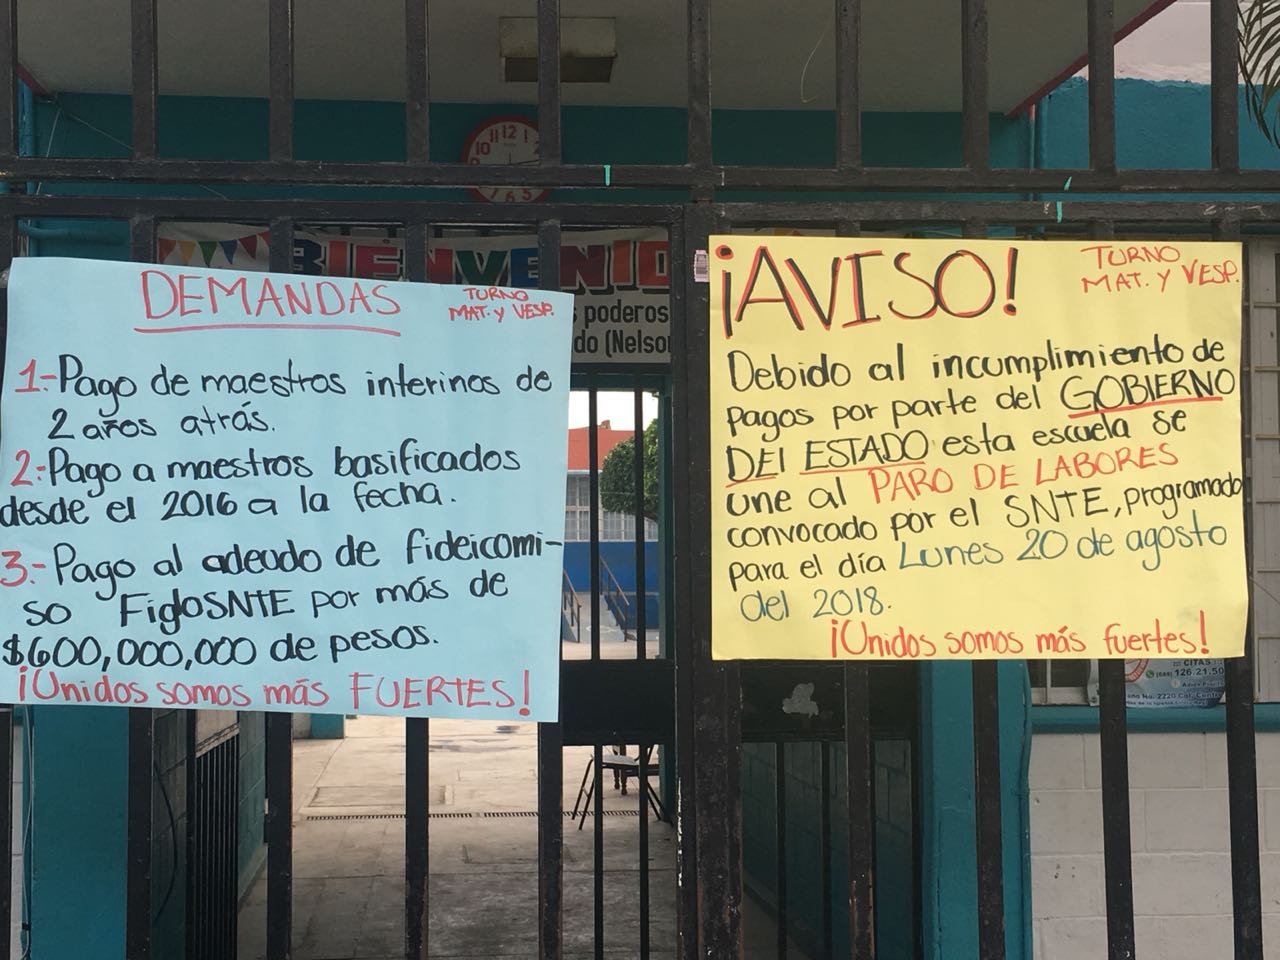 12
1
10
7 6 5
BIENVENID
s poderos
do (Nelso
DEMANDAS
TURNO
MAT. Y VESP.
1.- Pago de maestros interinos de
2 años atrás.
2.- Pago a maestros basificados
desde el 2016 a la fecha.
3.- Pago al adeudo de fideicomi-
so FidoSNTE por más de
$600,000,000 de pesos.
¡Unidos somos más FUERTES!
¡AVISO!
TURNO
MAT. Y VESP.
Debido al incumplimiento de
pagos por parte del GOBIERNO
DEl ESTADO esta escuela se
une al PARO DE LABORES
convocado por el SNTE, programado
para el día Lunes 20 de agosto
del 2018.
¡Unidos somos más fuertes!
CITAS
126.21.50
No. 2220 Col. Centro